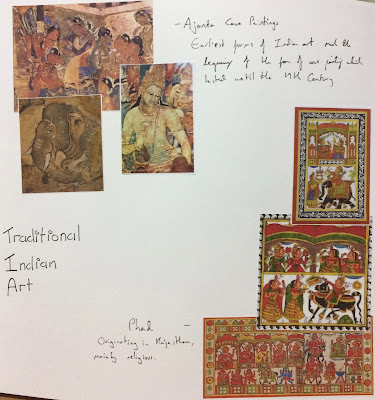 - Ajanta Cave Paintings
Earliest forms of Indian art and the
beginning of the form of cave painting which
lasted until the 19th Century
Traditional
Indian
Art
Phad -
Originating in Rajasthan,
mainly religious.